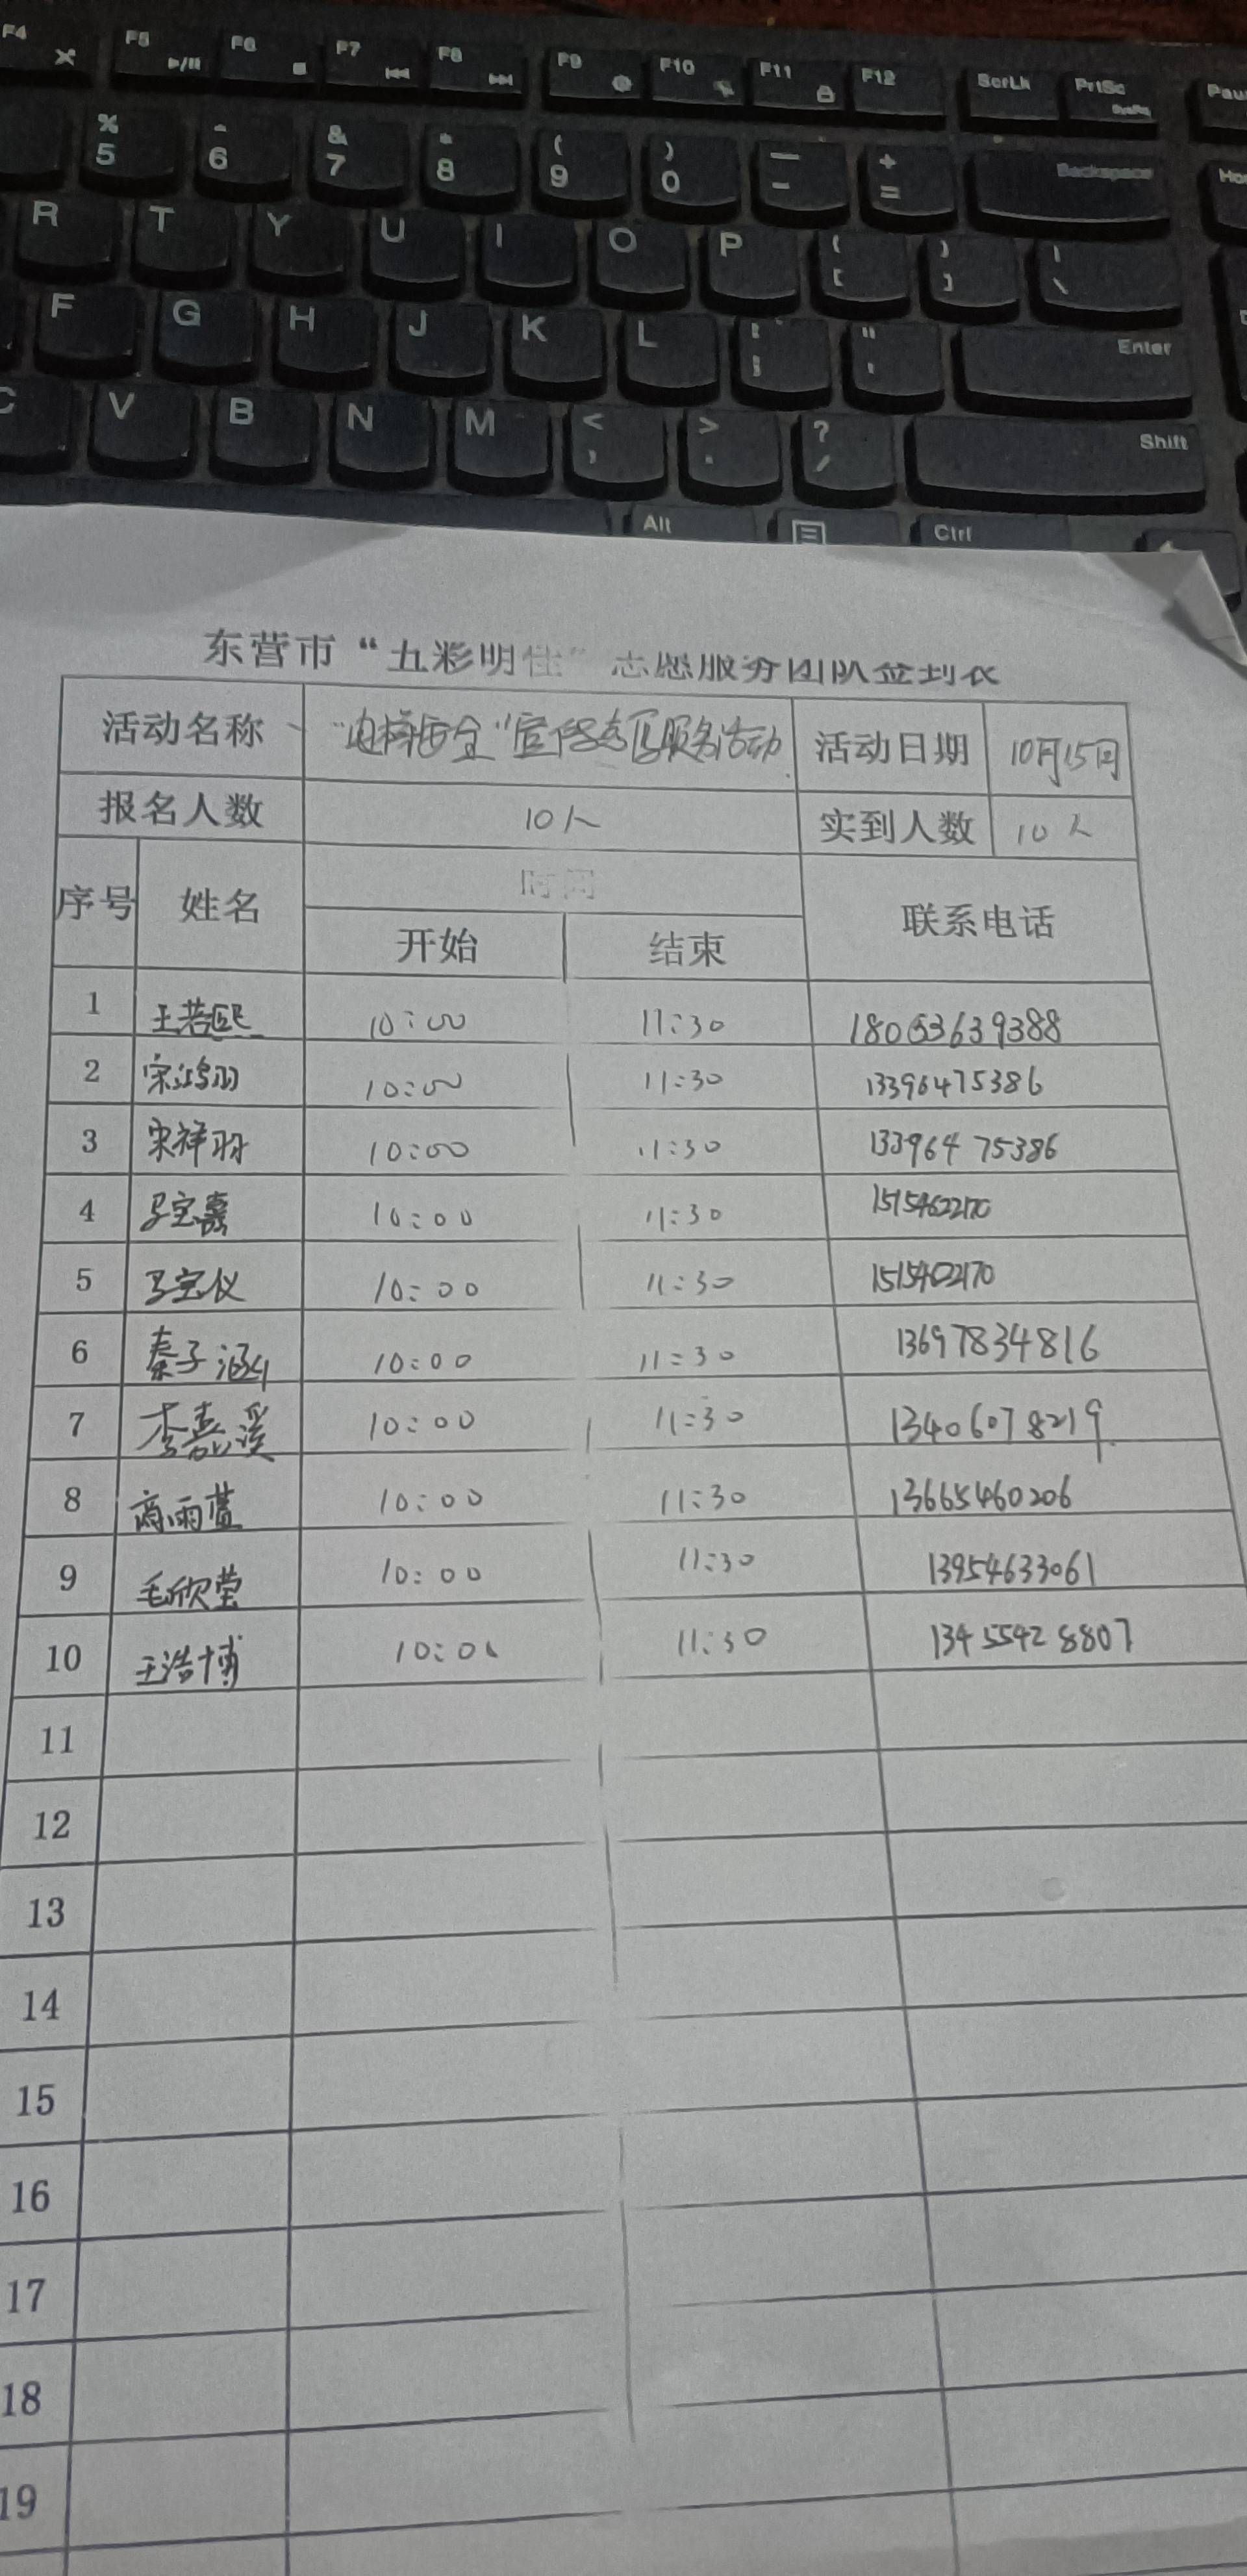 F4 F5 F6 F7 F8 F9 F10 F11 F12 ScrLk PrtSc Pau
SysRq
% ^ & * ( ) — +
5 6 7 8 9 0 - = Backspace Ho
R T Y U I O P { } |
[ ] \
F G H J K L : " Enter
; '
C V B N M < > ? Shift
, . /
Alt Ctrl
东营市“五彩明佳”志愿服务团队签到表
活动名称 “电梯安全”宣传志愿服务活动 活动日期 10月15日
报名人数 10人 实到人数 10人
序号 姓名 时间 联系电话
开始 结束
1 王若熙 10:00 11:30 18053639388
2 宋鸿羽 10:00 11:30 13396475386
3 宋祥羽 10:00 11:30 13396475386
4 马宝嘉 10:00 11:30
5 马宝仪 10:00 11:30
6 秦子涵 10:00 11:30 13697834816
7 李嘉溪 10:00 11:30 13406078219
8 高雨蓝 10:00 11:30 13665460206
9 毛欣莹 10:00 11:30 13954633061
10 王浩博 10:00 11:30 13455428807
11
12
13
14
15
16
17
18
19